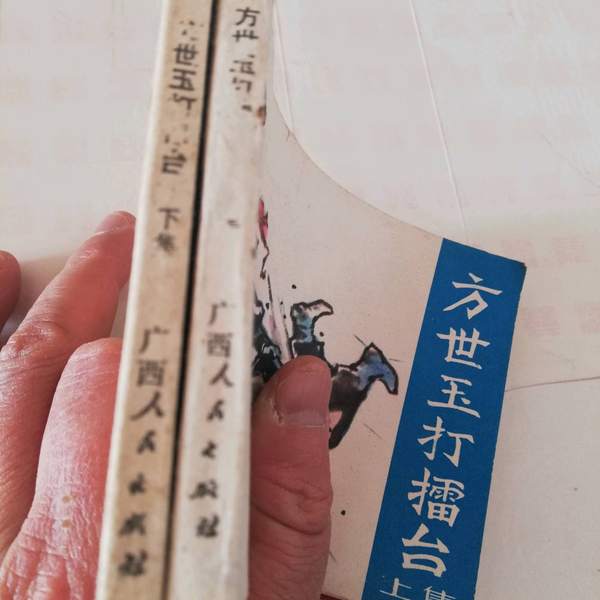 方世玉打擂台 下集 广西人民出版社
方世玉打 广西人民出版社
方世玉打擂台
上集